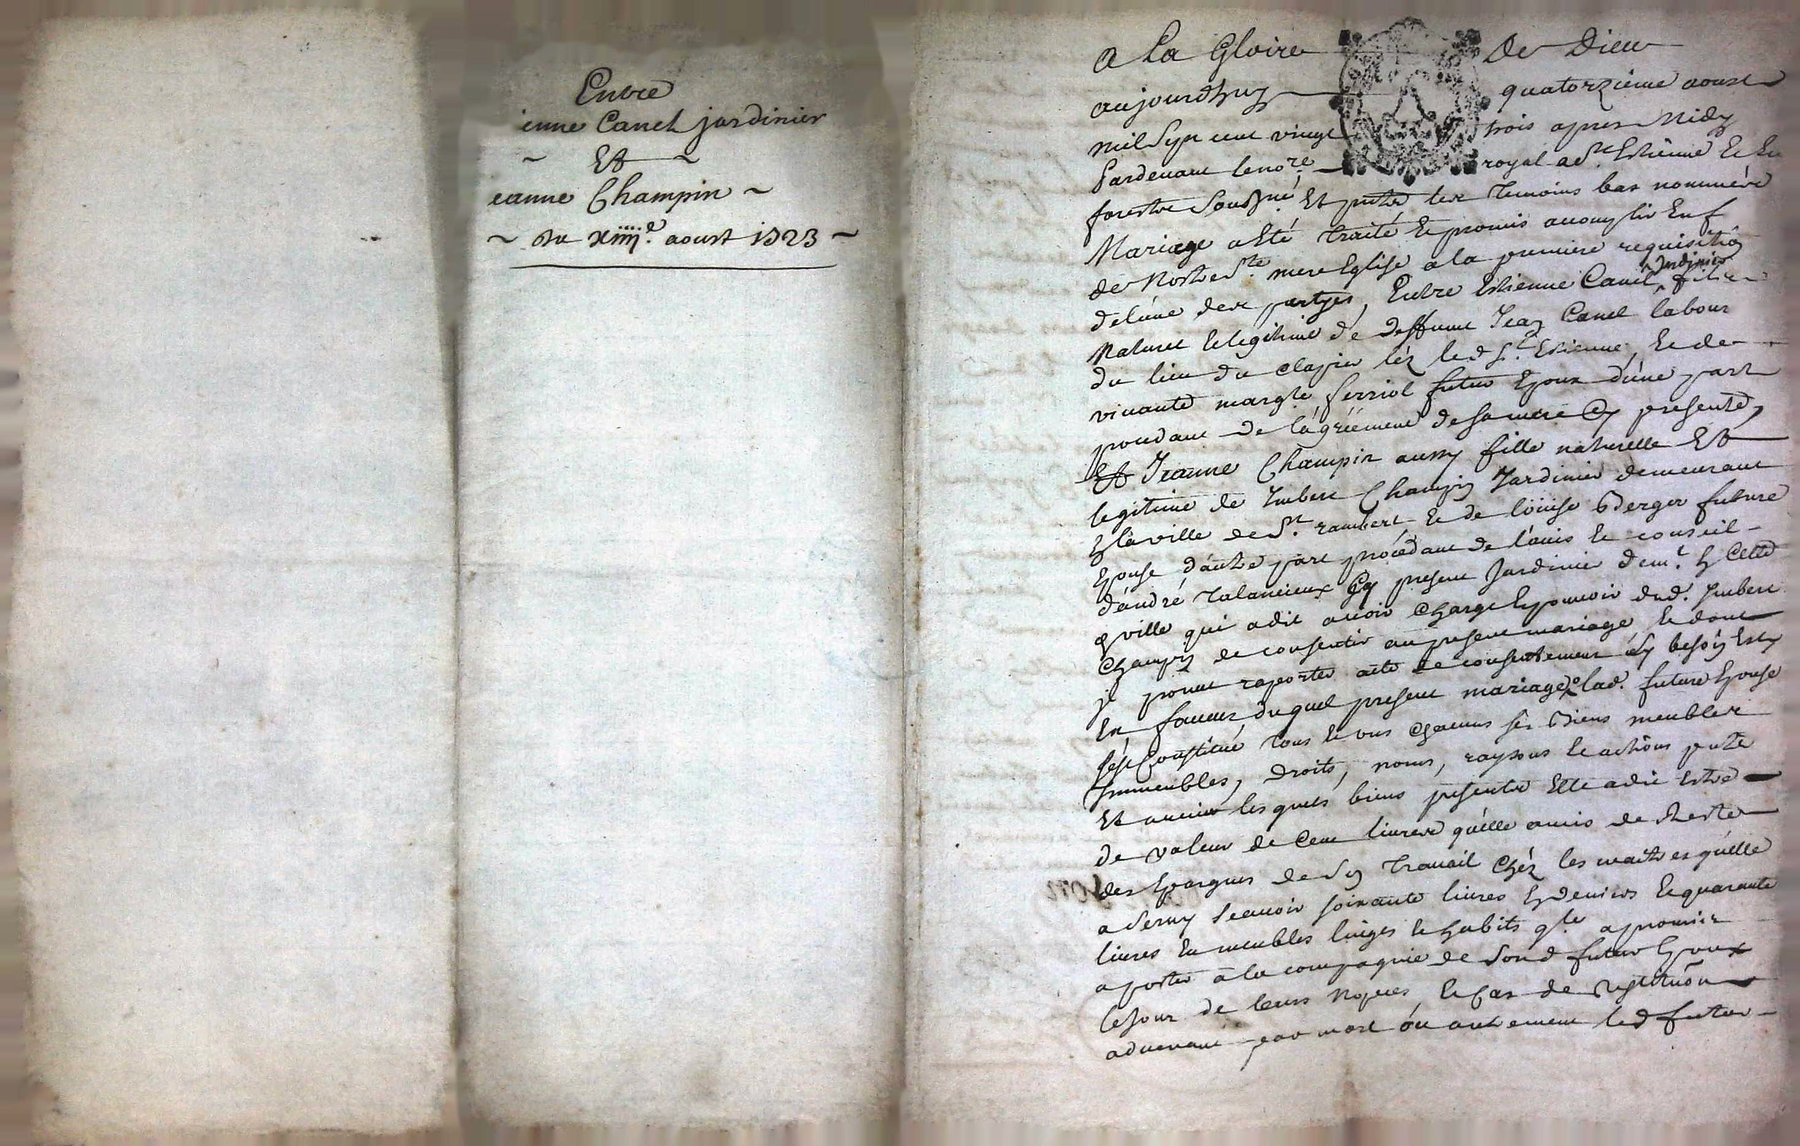 Entre
ienne Canel jardinier
~ Et ~
eanne Champin ~
~ du xiiii.e aoust 1723 ~
A La Gloire De Dieu
aujourdhuy quatorzième aoust
mil Sept cent vingt trois apres Midy
Pardevant le no.re royal a St. Estienne En
forestz Sousigné Et présents les Temoins bas nommées
Mariage a Eté Traité Et promis accomplir En f
de Nostre Ste. mere Eglise a la premiere requisition
de l'une des partyes, Entre Estienne Canel jardinier fils
Naturel Et legitime de deffunt Jean Canel labour
du lieu du clapier léz led St. Etienne, Et de
vivante margte. ferriol futur Epoux d'une part
procedant de l'agréement de sa mere Cy presente,
Et Jeanne Champin aussy fille naturelle Et
legitime de Imbert Champin Jardinier demeurant
En la ville de St. rambert Et de loüise Berger future
Epouse d'autre part procédant de l'auis Et conseil
d'andré Talancieux Cy present Jardinier dem.t En Cette
ville qui a dit avoir Charge Et pouvoir dud. Imbert
Champin de consentir au present mariage Et dont
il promet raporter acte de consentement sy besoin Est
En faveur duquel present mariage lad. future Epouse
s'est Constitué Tous Et uns Chacuns ses Biens meubles
Immeubles, droits, noms, raysons Et actions pnts
Et avenir lesquels biens presents Elle a dit Estre
de valeur de Cent livres qu'elle a mis de reste
des Epargnes de Son Travail Chéz les maitres qu'elle
a Servy Scauoir soixante livres En deniers Et quarante
livres En meubles linges Et habits qle. a promis
aporter a la compagnie de Son d futur Epoux
le Jour de leurs Nopces, Et Cas de restitution
aduenant par mort ou autrement led futur